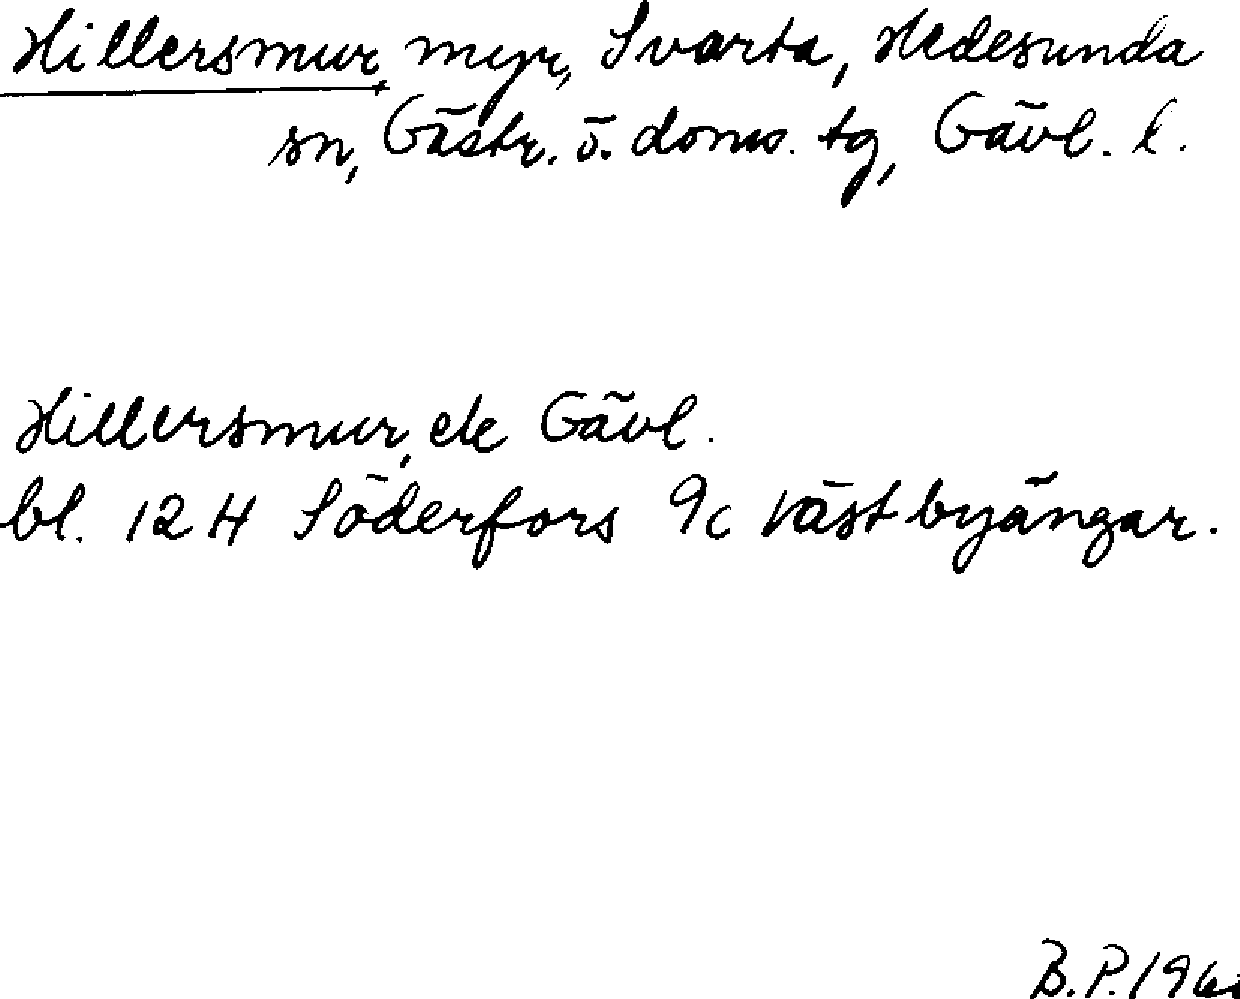 Hillersmur, myr, Svarta, Hedesunda
sn, Gästr. ö. doms. tg, Gävl. l.
Hillersmur, ek Gävl.
bl. 12 H Söderfors 9c Västbyängar.
B.P.